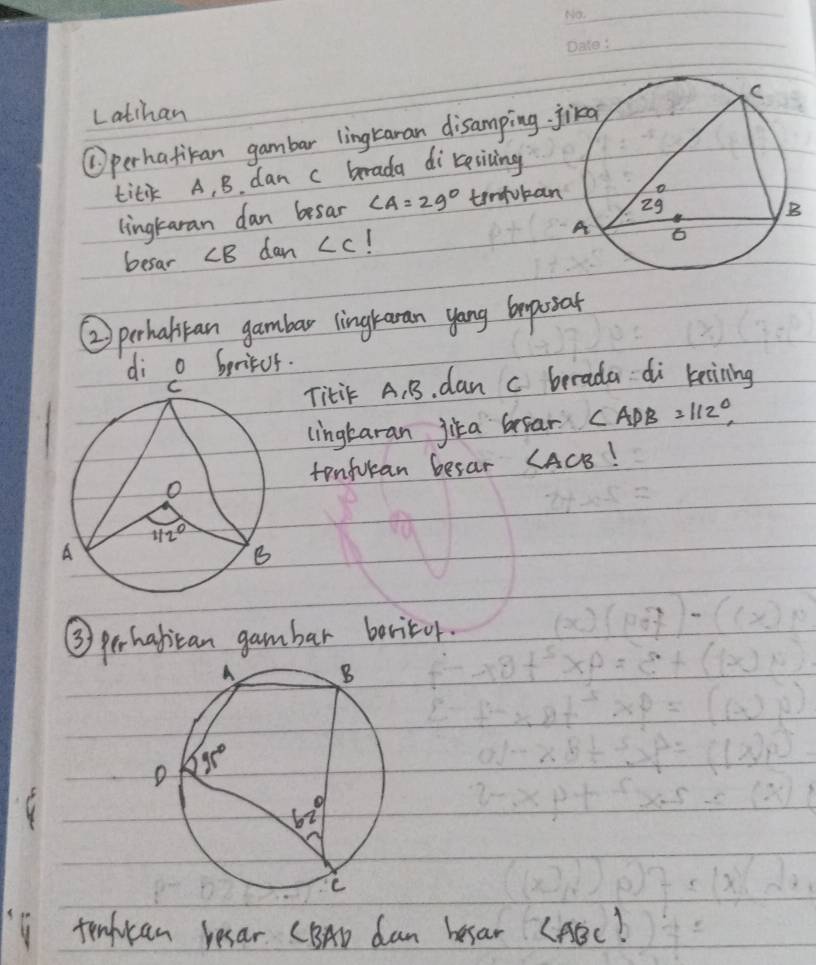 No.
Date:
Latihan
① perhatikan gambar lingkaran disamping. jika
titik A, B, dan C berada di keliling
lingkaran dan besar ∠A = 29° tentukan
besar ∠B dan ∠C!
C
29°
A
O
B
② perhatikan gambar lingkaran yang berpusat
di O berikut.
Titik A, B, dan C berada di keliling
lingkaran jika besar ∠AOB = 112°,
tentukan besar ∠ACB!
C
O
112°
A
B
③ perhatikan gambar berikut.
A
B
D
95°
62°
C
tentukan besar ∠BAD dan besar ∠ABC!